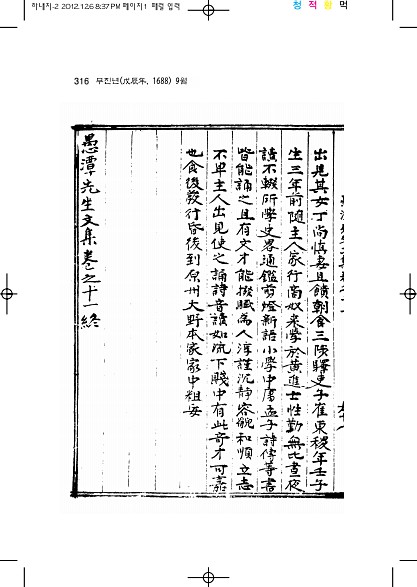 하내지-2 2012.12.6 8:37 PM 페이지1 매킹 입력
청 적 황 먹
316 무진년(戊辰年, 1688) 9월
出見其女丁尚慎妻且饋朝食三陟驛吏子崔東稷年壬子
生三年前隨主人家行商奴来學於黄進士性勤無比晝夜
讀不輟所學史畧通鑑剪燈新語小學中庸孟子詩傳等書
皆能誦之且有文才能掇賦爲人淳謹沉静容貌和順立志
不卑主人出見使之誦詩音讀如流下賤中有此奇才可嘉
也食後發行昏後到原州大野本家家中粗安
愚潭先生文集卷之十一終